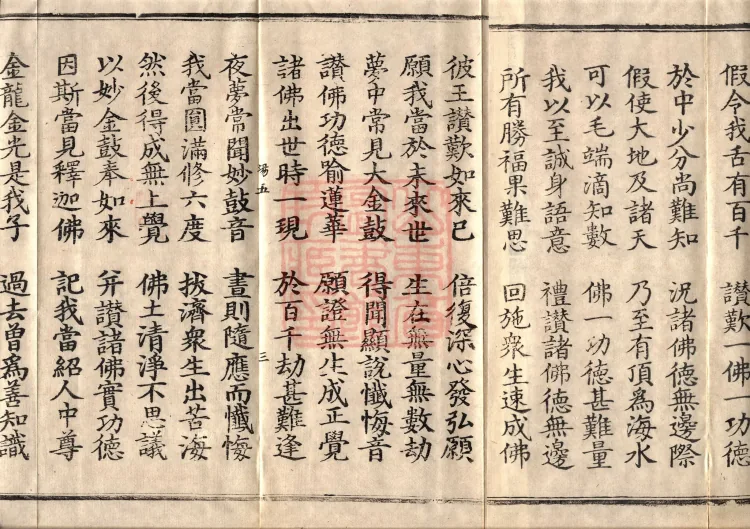 假令我舌有百千 讚歎一佛一功德
於中少分尚難知 況諸佛德無邊際
假使大地及諸天 乃至有頂爲海水
可以毛端滴知數 佛一功德甚難量
我以至誠身語意 禮讚諸佛德無邊
所有勝福果難思 回施衆生速成佛
彼王讚歎如來已 倍復深心發弘願
願我當於未來世 生在無量無數劫
夢中常見大金鼓 得聞顯說懺悔音
讚佛功德喻蓮華 願證無生成正覺
諸佛出世時一現 於百千劫甚難逢
場五 三
夜夢常聞妙鼓音 晝則隨應而懺悔
我當圓滿修六度 拔濟衆生出苦海
然後得成無上覺 佛土清淨不思議
以妙金鼓奉如來 并讚諸佛實功德
因斯當見釋迦佛 記我當紹人中尊
金龍金光是我子 過去曾爲善知識